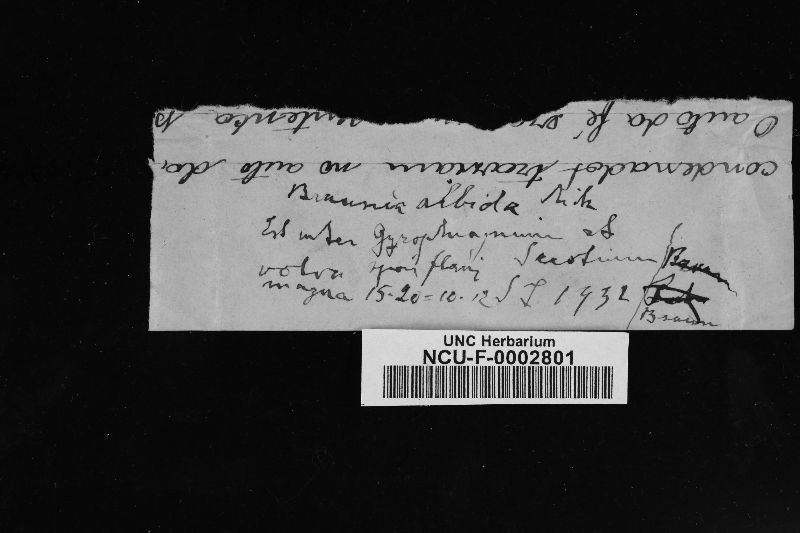 O auto da fé
condenados no auto da
Braunia albida Rick
Est inter Gyrophragmium et
volva spori flavi Secotium
magna 15-20=10-12 S L 1932
Braun
UNC Herbarium
NCU-F-0002801